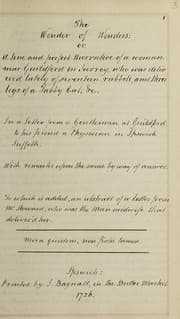 The
Wonder of Wonders:
or
A true and perfect Narrative of a woman
near Guildford in Surrey, who was deliv
ered lately of seventeen rabbets, and three
legs of a Tabby Cat, &c.
In a letter from a Gentleman at Guildford
to his friend a Physician in Ipswich
Suffolk.
With remarks upon the same by way of answer.
To which is added, an abstract of a letter from
Mr. Howard, who was the Man midwife that
deliver'd her.
Mira quidem, non
Ipswich:
Printed by J. Bagnall, in the Butter Market,
1726.